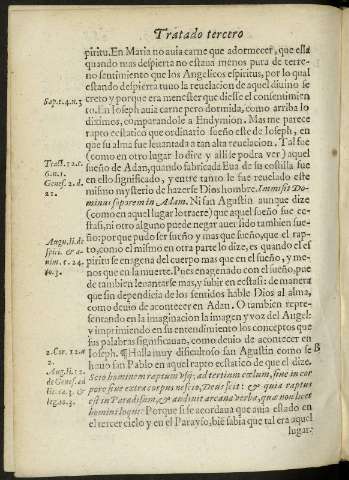 Tratado tercero
piritu. En Maria no auia carne que adormecer, que ella
quando mas despierta no estaua menos pura de terre-
no sentimiento que los Angelicos espiritus, por lo qual
estando despierta tuuo la reuelacion de aquel diuino se
Sap. 1. 4. n. 3
creto y porque era menester que diesse el consentimien
to. En Ioseph auia carne pero dormida, como arriba lo
diximos, comparandole a Endymion. Mas me parece
rapto ecstatico que ordinario sueño este de Ioseph, en
que su alma fue leuantada a tan alta reuelacion. Tal fue
Tract. 12. c.
6. n. 1.
Genes. 2. d.
21.
(como en otro lugar lo dixe y alli se podra ver) aquel
sueño de Adan, quando fabricada Eua de su costilla fue
en ello significado, y entre tanto le fue reuelado este
mismo mysterio de hazerse Dios hombre. Immisit Do-
minus soporem in Adam. Ni san Agustin aunque dize
(como en aquel lugar lo traere) que aquel sueño fue ecs-
tasi, ni otro alguno puede negar auerlo tambien sue-
Augu. li. de
spir. & a-
nim. c. 24.
to. 3.
ño: porque pudo ser sueño y mas que sueño, que el rap-
to, como el mismo en otra parte lo dize, es quando el es
piritu se enagena del cuerpo mas que en el sueño, y me-
nos que en la muerte. Pues enagenado con el sueño, pue
de tambien leuantarse mas, y subir en ecstasi: de manera
que sin dependecia de los sentidos hable Dios al alma,
como deuio de acontecer en Adan. O tambien repre-
sentando en la imaginacion la imagen y voz del Angel
y imprimiendo en su entendimiento los conceptos que
sus palabras significauan, como deuio de acontecer en
2. Cor. 12. a
2.
Ioseph. ¶ Halla muy dificultoso san Agustin como se B
Aug. li. 12.
de Genes. ad
lit. to. 3. &
leg. to. 3.
huuo san Pablo en aquel rapto ecstatico de que el dize.
Scio hominem raptum vsq; ad tertium cœlum, siue in cor
pore siue extra corpus nescio, Deus scit: & quia raptus
est in Paradisum, & audiuit arcana verba, quæ non licet
homini loqui: Porque si se acordaua que auia estado en
el tercer cielo y en el Parayso, biē sabia que tal era aquel
lugar: